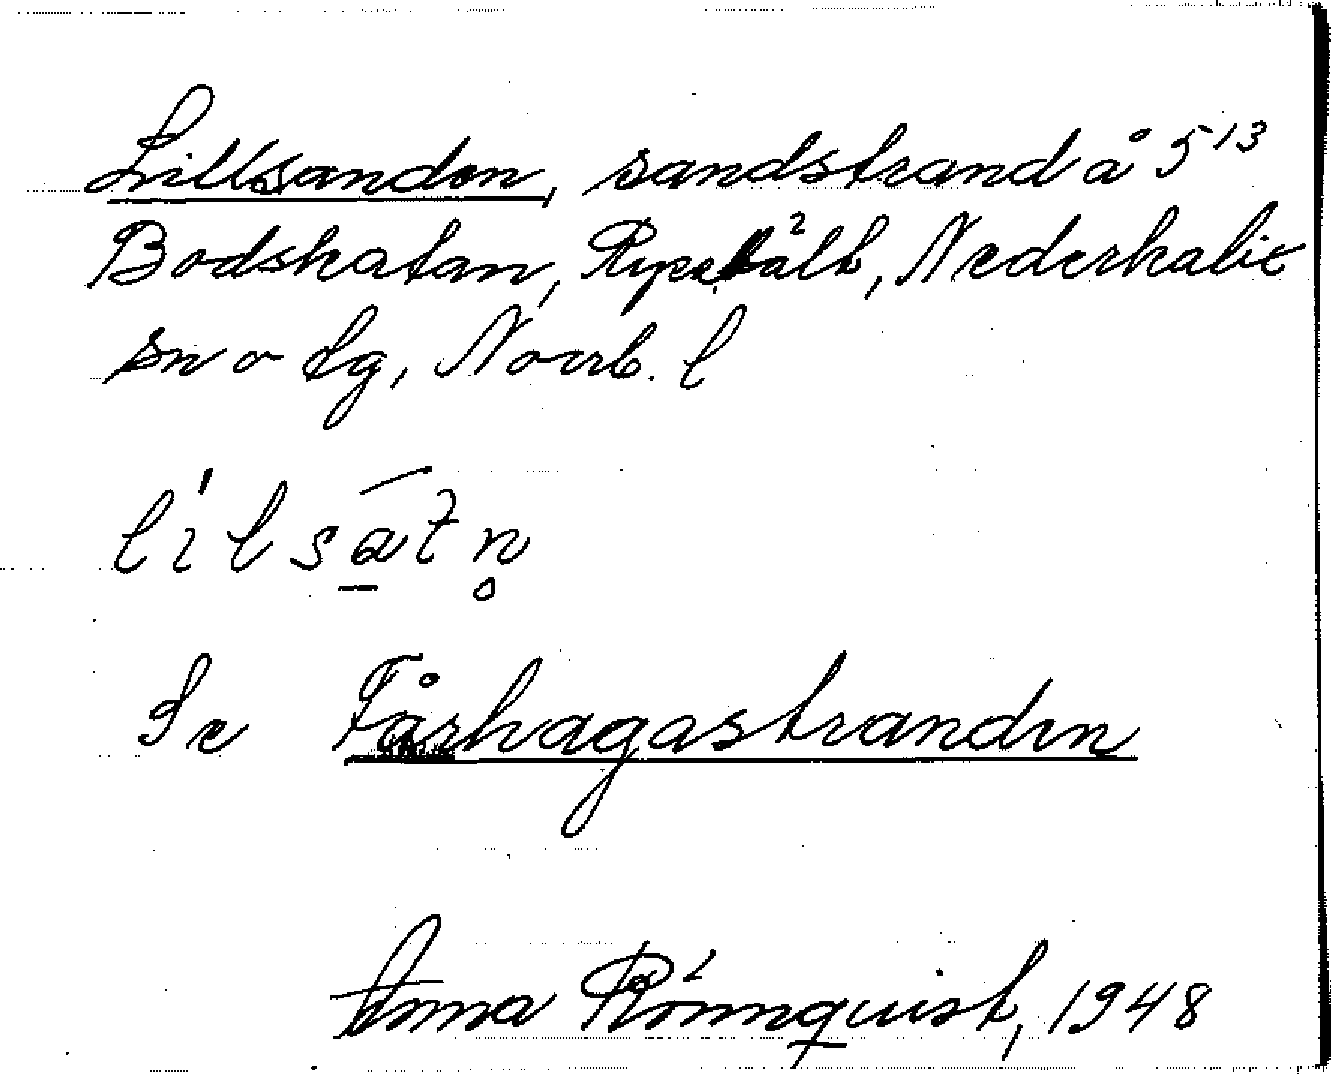 Lillsanden, sandstrand å 5¹³
Bodskatan, Ryssbält, Nederkalix
sn o tg, Norrb. l
Se Fårhagastranden
Anna Rönnquist, 1948